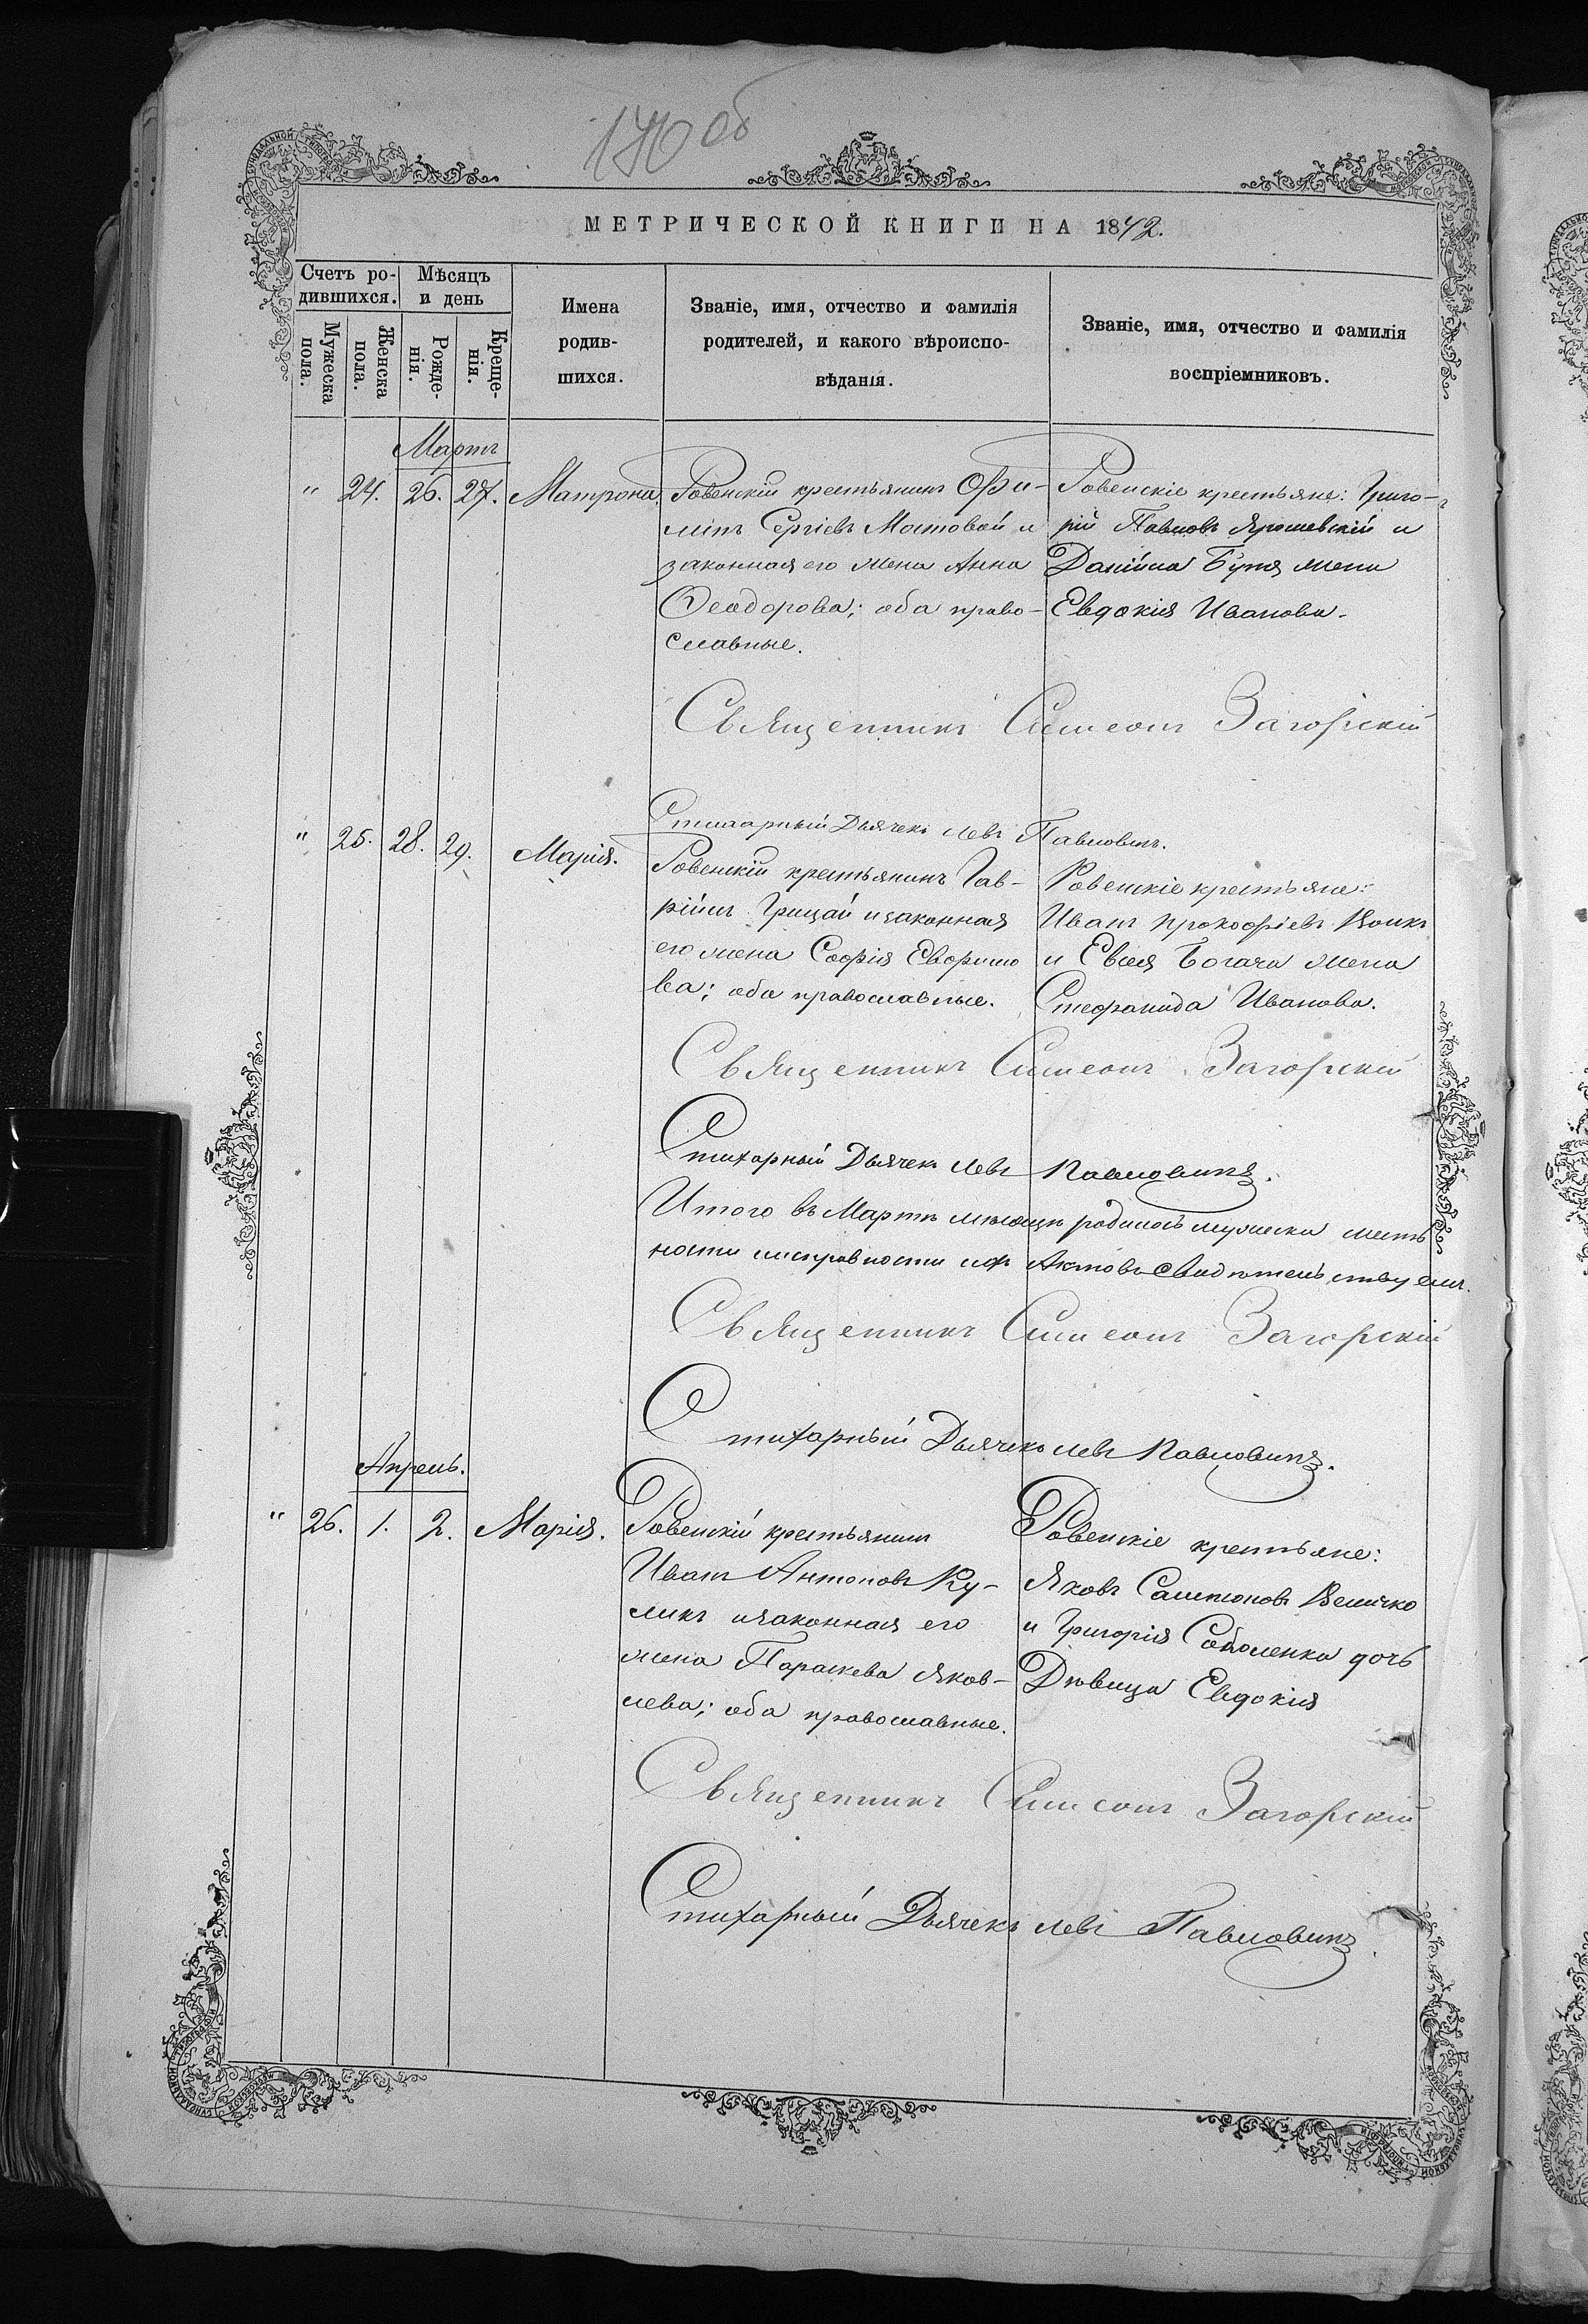 140 об
МЕТРИЧЕСКОЙ КНИГИ НА 1842.
Счетъ ро-
дившихся.
Мѣсяцъ
и день
Мужеска
пола.
Женска
пола.
Рожде-
нія.
Креще-
нія.
Имена
родив-
шихся.
Званіе, имя, отчество и фамилія
родителей, и какого вѣроиспо-
вѣданія.
Званіе, имя, отчество и фамилія
воспріемниковъ.
Мартъ
" 24. 26. 27. Матрона
Ровенскій крестьянинъ
Сергіевъ Мостовой и
законная его жена Анна
Ѳеодорова; оба право-
славные.
Ровенскіе крестьяне: Григо-
рій Павловъ Ярошевскій и
Даніила Бутя жена
Евдокія Иванова.
Священникъ Симеонъ Загорскій
Стихарный Дьячекъ Левъ Павловичъ.
" 25. 28. 29. Марія.
Ровенскій крестьянинъ Гав-
ріилъ Грицай и законная
его жена Софія
ва; оба православные.
Ровенскіе крестьяне:
Иванъ Прокофіевъ Волкъ
и Евсея Богача жена
Стефанида Иванова.
Священникъ Симеонъ Загорскій
Стихарный Дьячекъ Левъ Павловичъ.
Итого въ Мартѣ мѣсяцѣ родилось мужеска
исправности Актовъ свидѣтельствуемъ.
Священникъ Симеонъ Загорскій
Стихарный Дьячекъ Левъ Павловичъ.
Апрель.
" 26. 1. 2. Марія.
Ровенскій крестьянинъ
Иванъ Антоновъ Ку-
ликъ и законная его
жена Параскева Яков-
лева; оба православные.
Ровенскіе крестьяне:
Яковъ Самсоновъ Величко
и Григорія Соболенка дочь
Дѣвица Евдокія
Священникъ Симеонъ Загорскій
Стихарный Дьячекъ Левъ Павловичъ